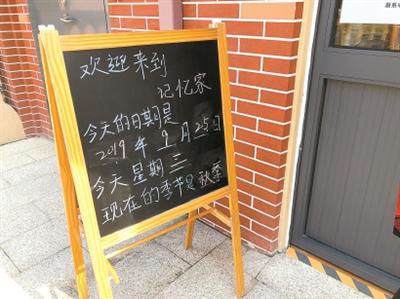 欢迎来到
记忆家
今天的日期是
2019年9月25日
今天星期三
现在的季节是秋季